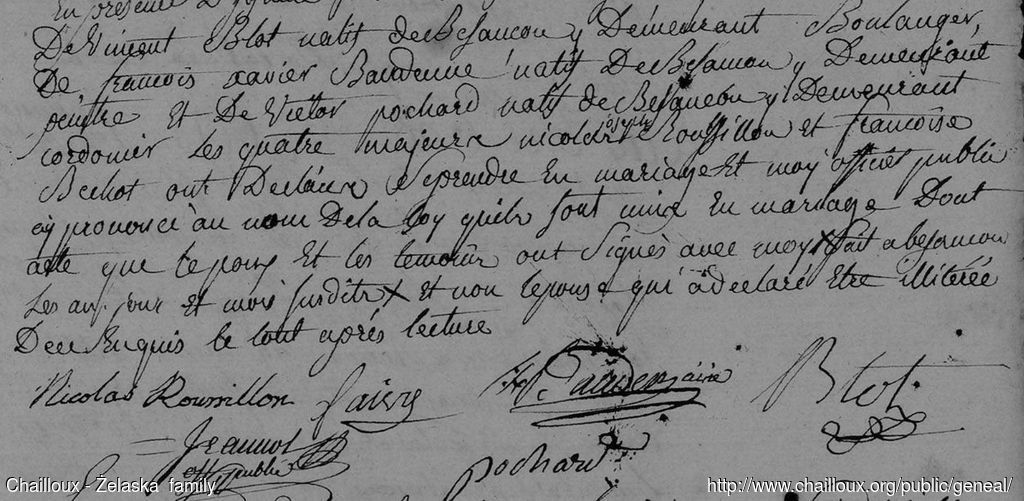 En presence
De Vincent Blot natif de Besancon y Demeurant Boulanger,
De francois xavier Baudenne natif De Besancon y Demeurant
peintre Et De Victor pochard natif de Besancon y Demeurant
cordonier les quatre majeurs nicolas joseph Roussillon et francoise
Bechot ont Declarer Se prendre En mariage Et moy officier public
ay prononcé au nom De la loy quils sont unix En mariage Dont
acte que lepoux Et les temoins ont Signés avec moy x fait a besancon
les an, jour et mois susdits x et non lepouse qui a declaré Etre illiterée
De ce Enquis le tout aprés lecture
Nicolas Roussillon faivre Blot.
Jeannot
off public pochard
Chailloux - Żelaska family http://www.chailloux.org/public/geneal/